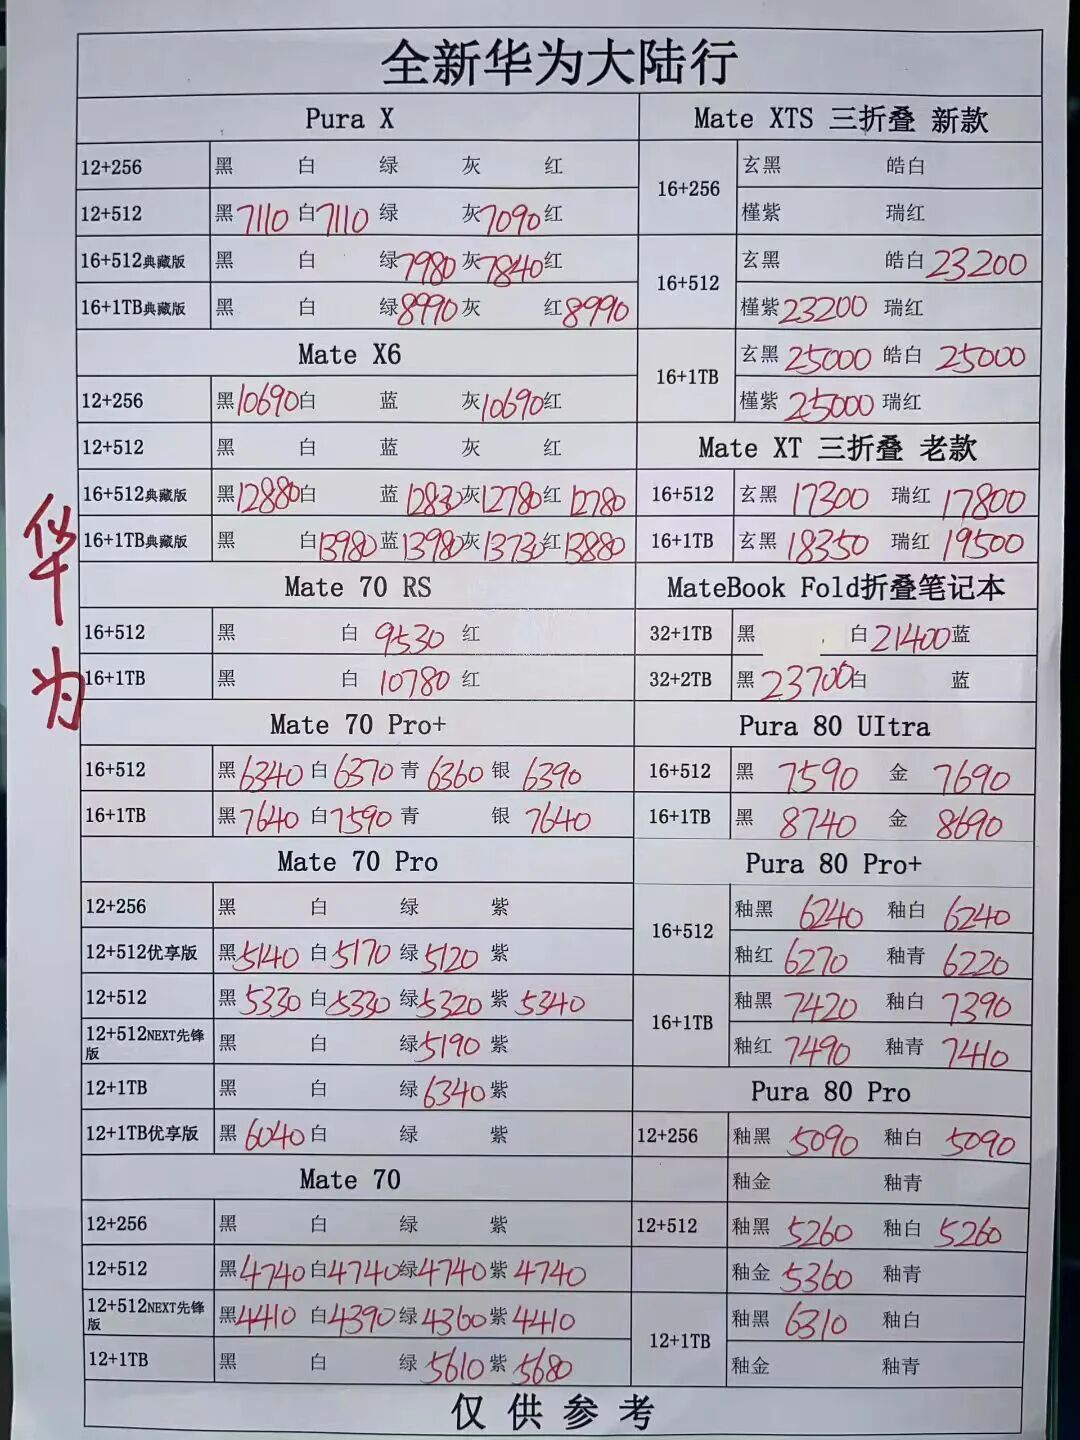 全新华为大陆行
Pura X
12+256 黑 白 绿 灰 红
12+512 黑7110 白7110 绿 灰7090 红
16+512典藏版 黑 白 绿7980 灰7840 红
16+1TB典藏版 黑 白 绿8990 灰 红8990
Mate X6
12+256 黑10690 白 蓝 灰10690 红
12+512 黑 白 蓝 灰 红
16+512典藏版 黑12880 白 蓝12830 灰12780 红12780
16+1TB典藏版 黑 白13980 蓝13980 灰13730 红13880
Mate 70 RS
16+512 黑 白 9530 红
16+1TB 黑 白 10780 红
Mate 70 Pro+
16+512 黑6340 白6370 青6360 银6390
16+1TB 黑7640 白7590 青 银7640
Mate 70 Pro
12+256 黑 白 绿 紫
12+512优享版 黑5140 白5170 绿5120 紫
12+512 黑5330 白5330 绿5320 紫5340
12+512NEXT先锋版 黑 白 绿5190 紫
12+1TB 黑 白 绿6340 紫
12+1TB优享版 黑6040 白 绿 紫
Mate 70
12+256 黑 白 绿 紫
12+512 黑4740 白4740 绿4740 紫4740
12+512NEXT先锋版 黑4410 白4390 绿4360 紫4410
12+1TB 黑 白 绿5610 紫5680
Mate XTS 三折叠 新款
16+256 玄黑 皓白
槿紫 瑞红
16+512 玄黑 皓白23200
槿紫23200 瑞红
16+1TB 玄黑25000 皓白25000
槿紫25000 瑞红
Mate XT 三折叠 老款
16+512 玄黑17300 瑞红17800
16+1TB 玄黑18350 瑞红19500
MateBook Fold折叠笔记本
32+1TB 黑 白21400 蓝
32+2TB 黑23700 白 蓝
Pura 80 UItra
16+512 黑 7590 金 7690
16+1TB 黑 8740 金 8690
Pura 80 Pro+
16+512 釉黑 6240 釉白 6240
釉红 6270 釉青 6220
16+1TB 釉黑 7420 釉白 7390
釉红 7490 釉青 7410
Pura 80 Pro
12+256 釉黑 5090 釉白 5090
釉金 釉青
12+512 釉黑 5260 釉白 5260
釉金 5360 釉青
12+1TB 釉黑 6310 釉白
釉金 釉青
仅供参考
华为